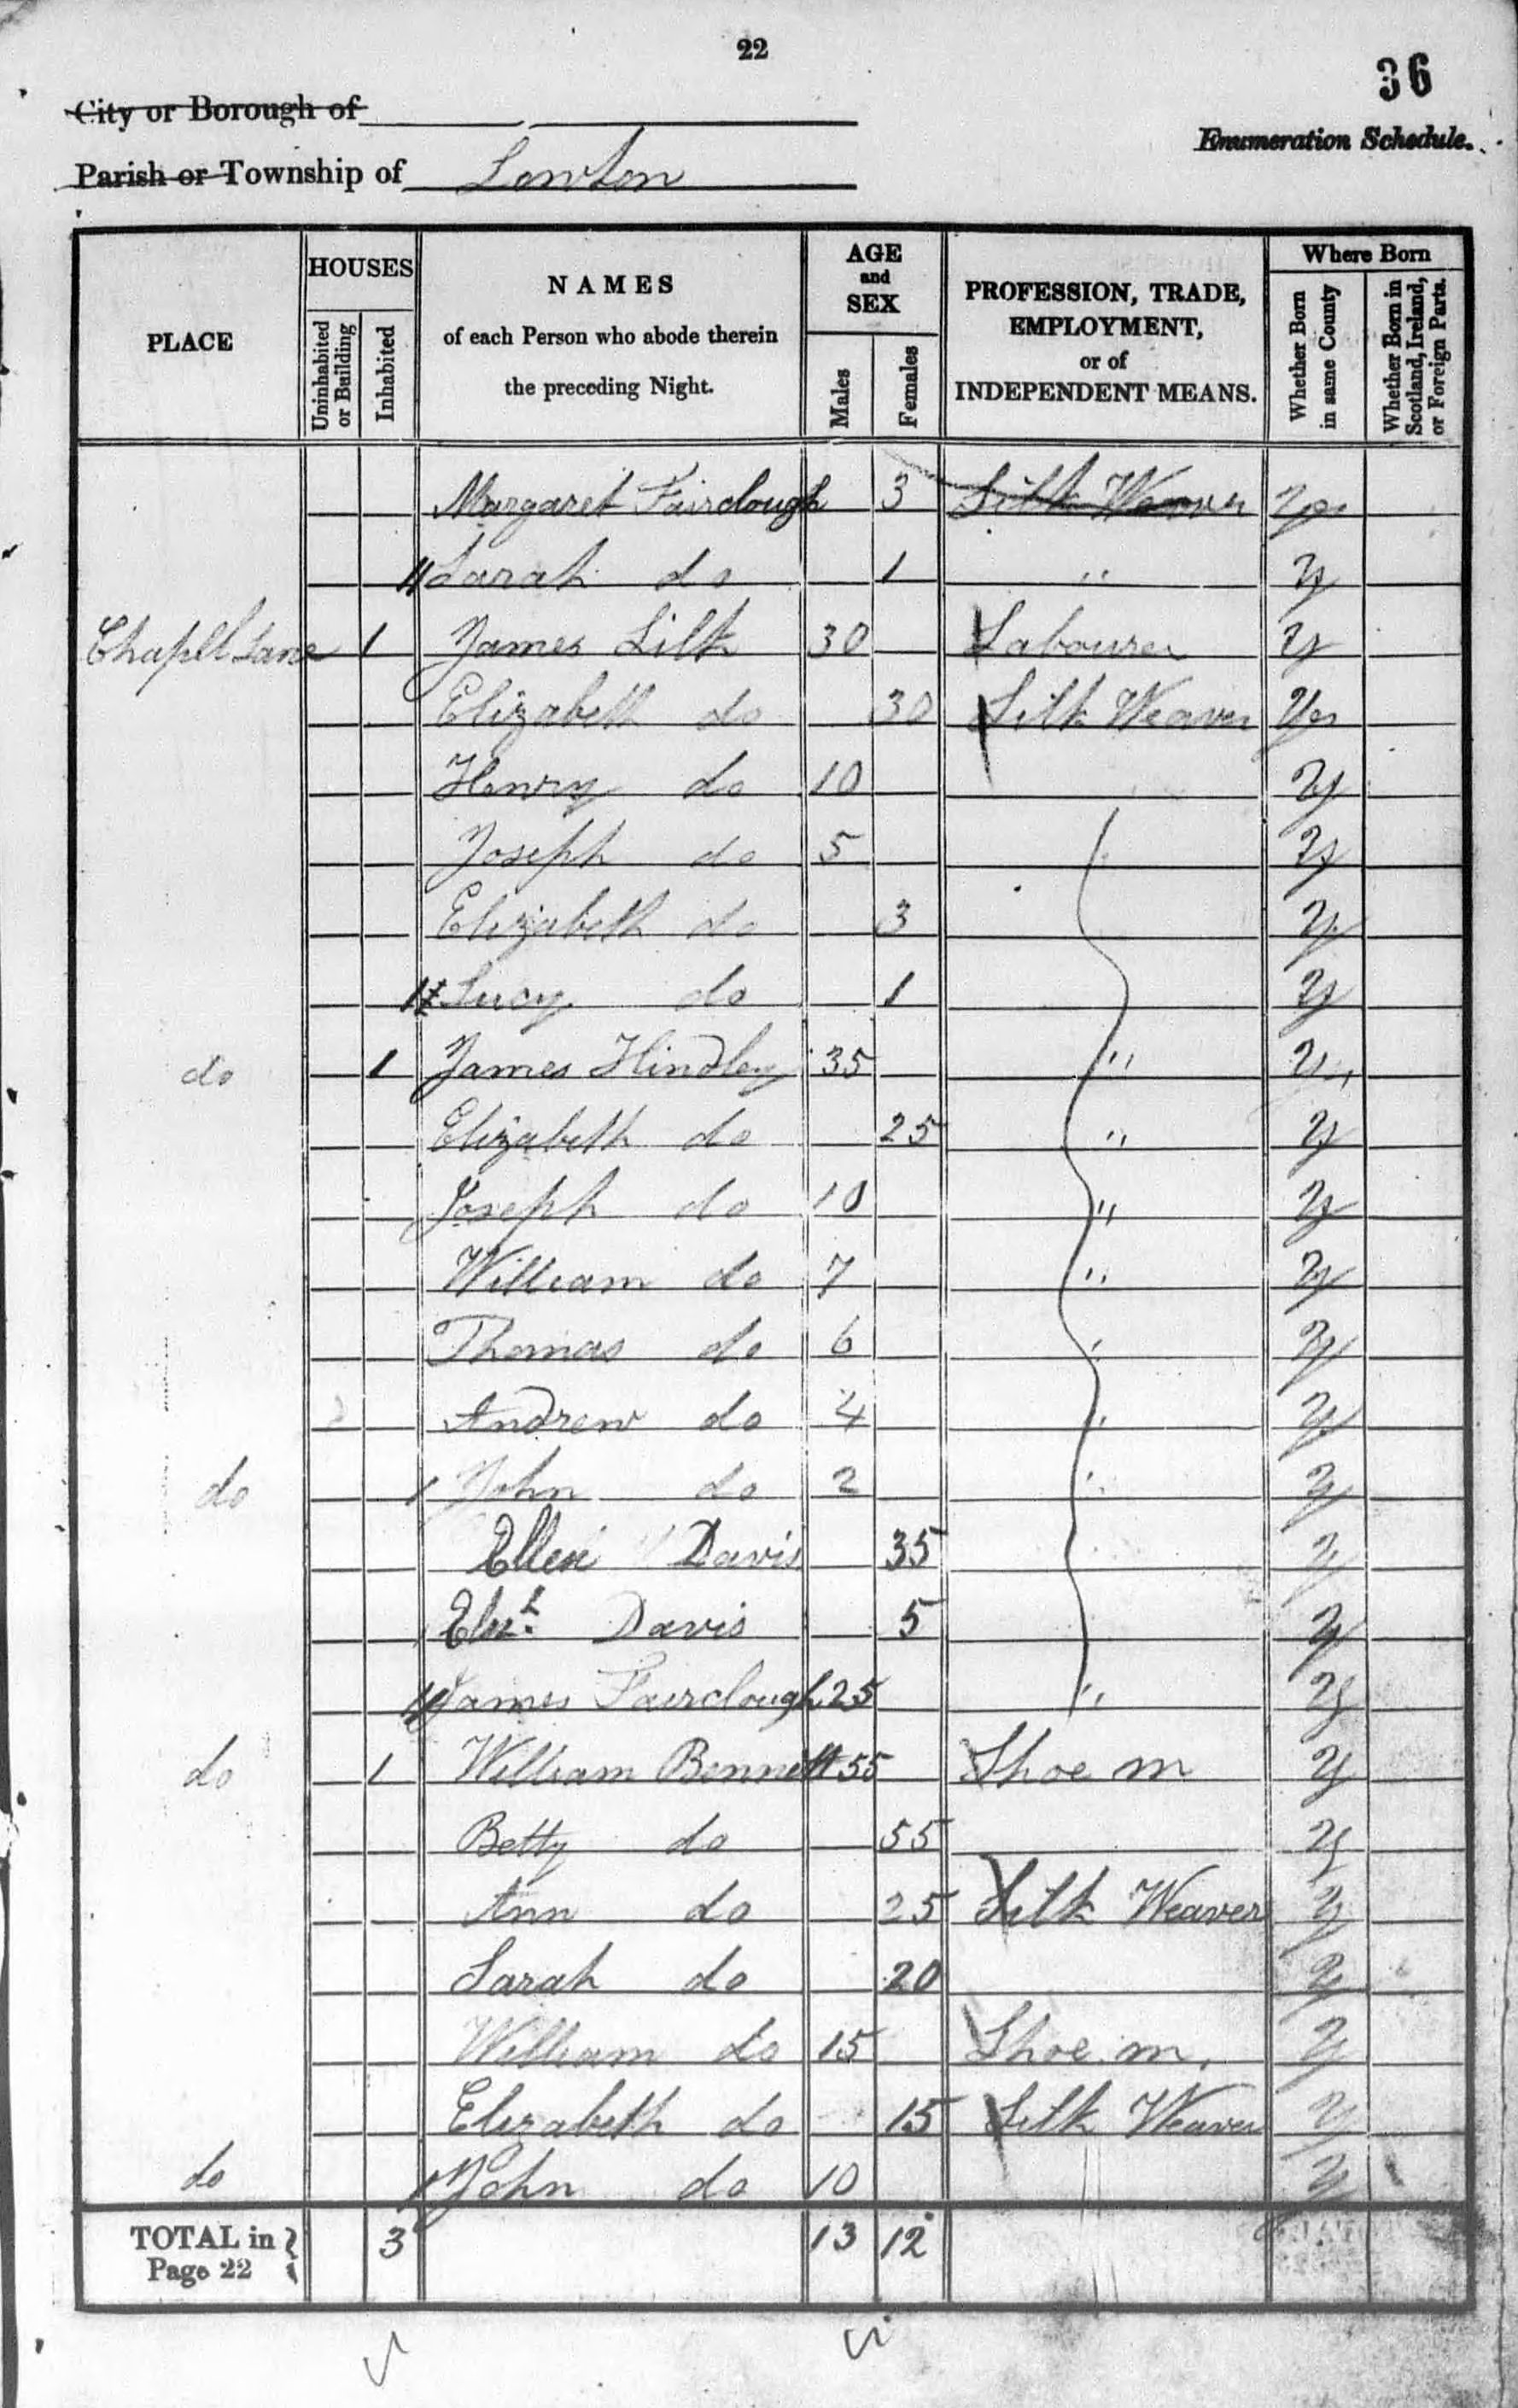 22
36
City or Borough of
Enumeration Schedule.
Parish or Township of Lowton
PLACE
HOUSES
Uninhabited or Building
Inhabited
NAMES
of each Person who abode therein
the preceding Night.
AGE
and
SEX
Males
Females
PROFESSION, TRADE,
EMPLOYMENT,
or of
INDEPENDENT MEANS.
Where Born
Whether Born in same County
Whether Born in Scotland, Ireland, or Foreign Parts.
Margaret Fairclough 3 Silk Weaver Yes
Sarah do 1 " Y
Chapel Lane 1 James Silk 30 Labourer Y
Elizabeth do 30 Silk Weaver Yes
Henry do 10 Y
Joseph do 5 Y
Elizabeth do 3 Y
Lucy do 1 Y
do 1 James Hindley 35 " Y
Elizabeth do 25 " Y
Joseph do 10 " Y
William do 7 " Y
Thomas do 6 " Y
Andrew do 4 " Y
do John do 2 " Y
Ellen Davis 35 Y
Elizth Davis 5 Y
James Fairclough 25 " Y
do 1 William Bennett 55 Shoe m Y
Betty do 55 Y
Ann do 25 Silk Weaver Y
Sarah do 20 Y
William do 15 Shoe m. Y
Elizabeth do 15 Silk Weaver Y
do John do 10 Y
TOTAL in
Page 22 3 13 12